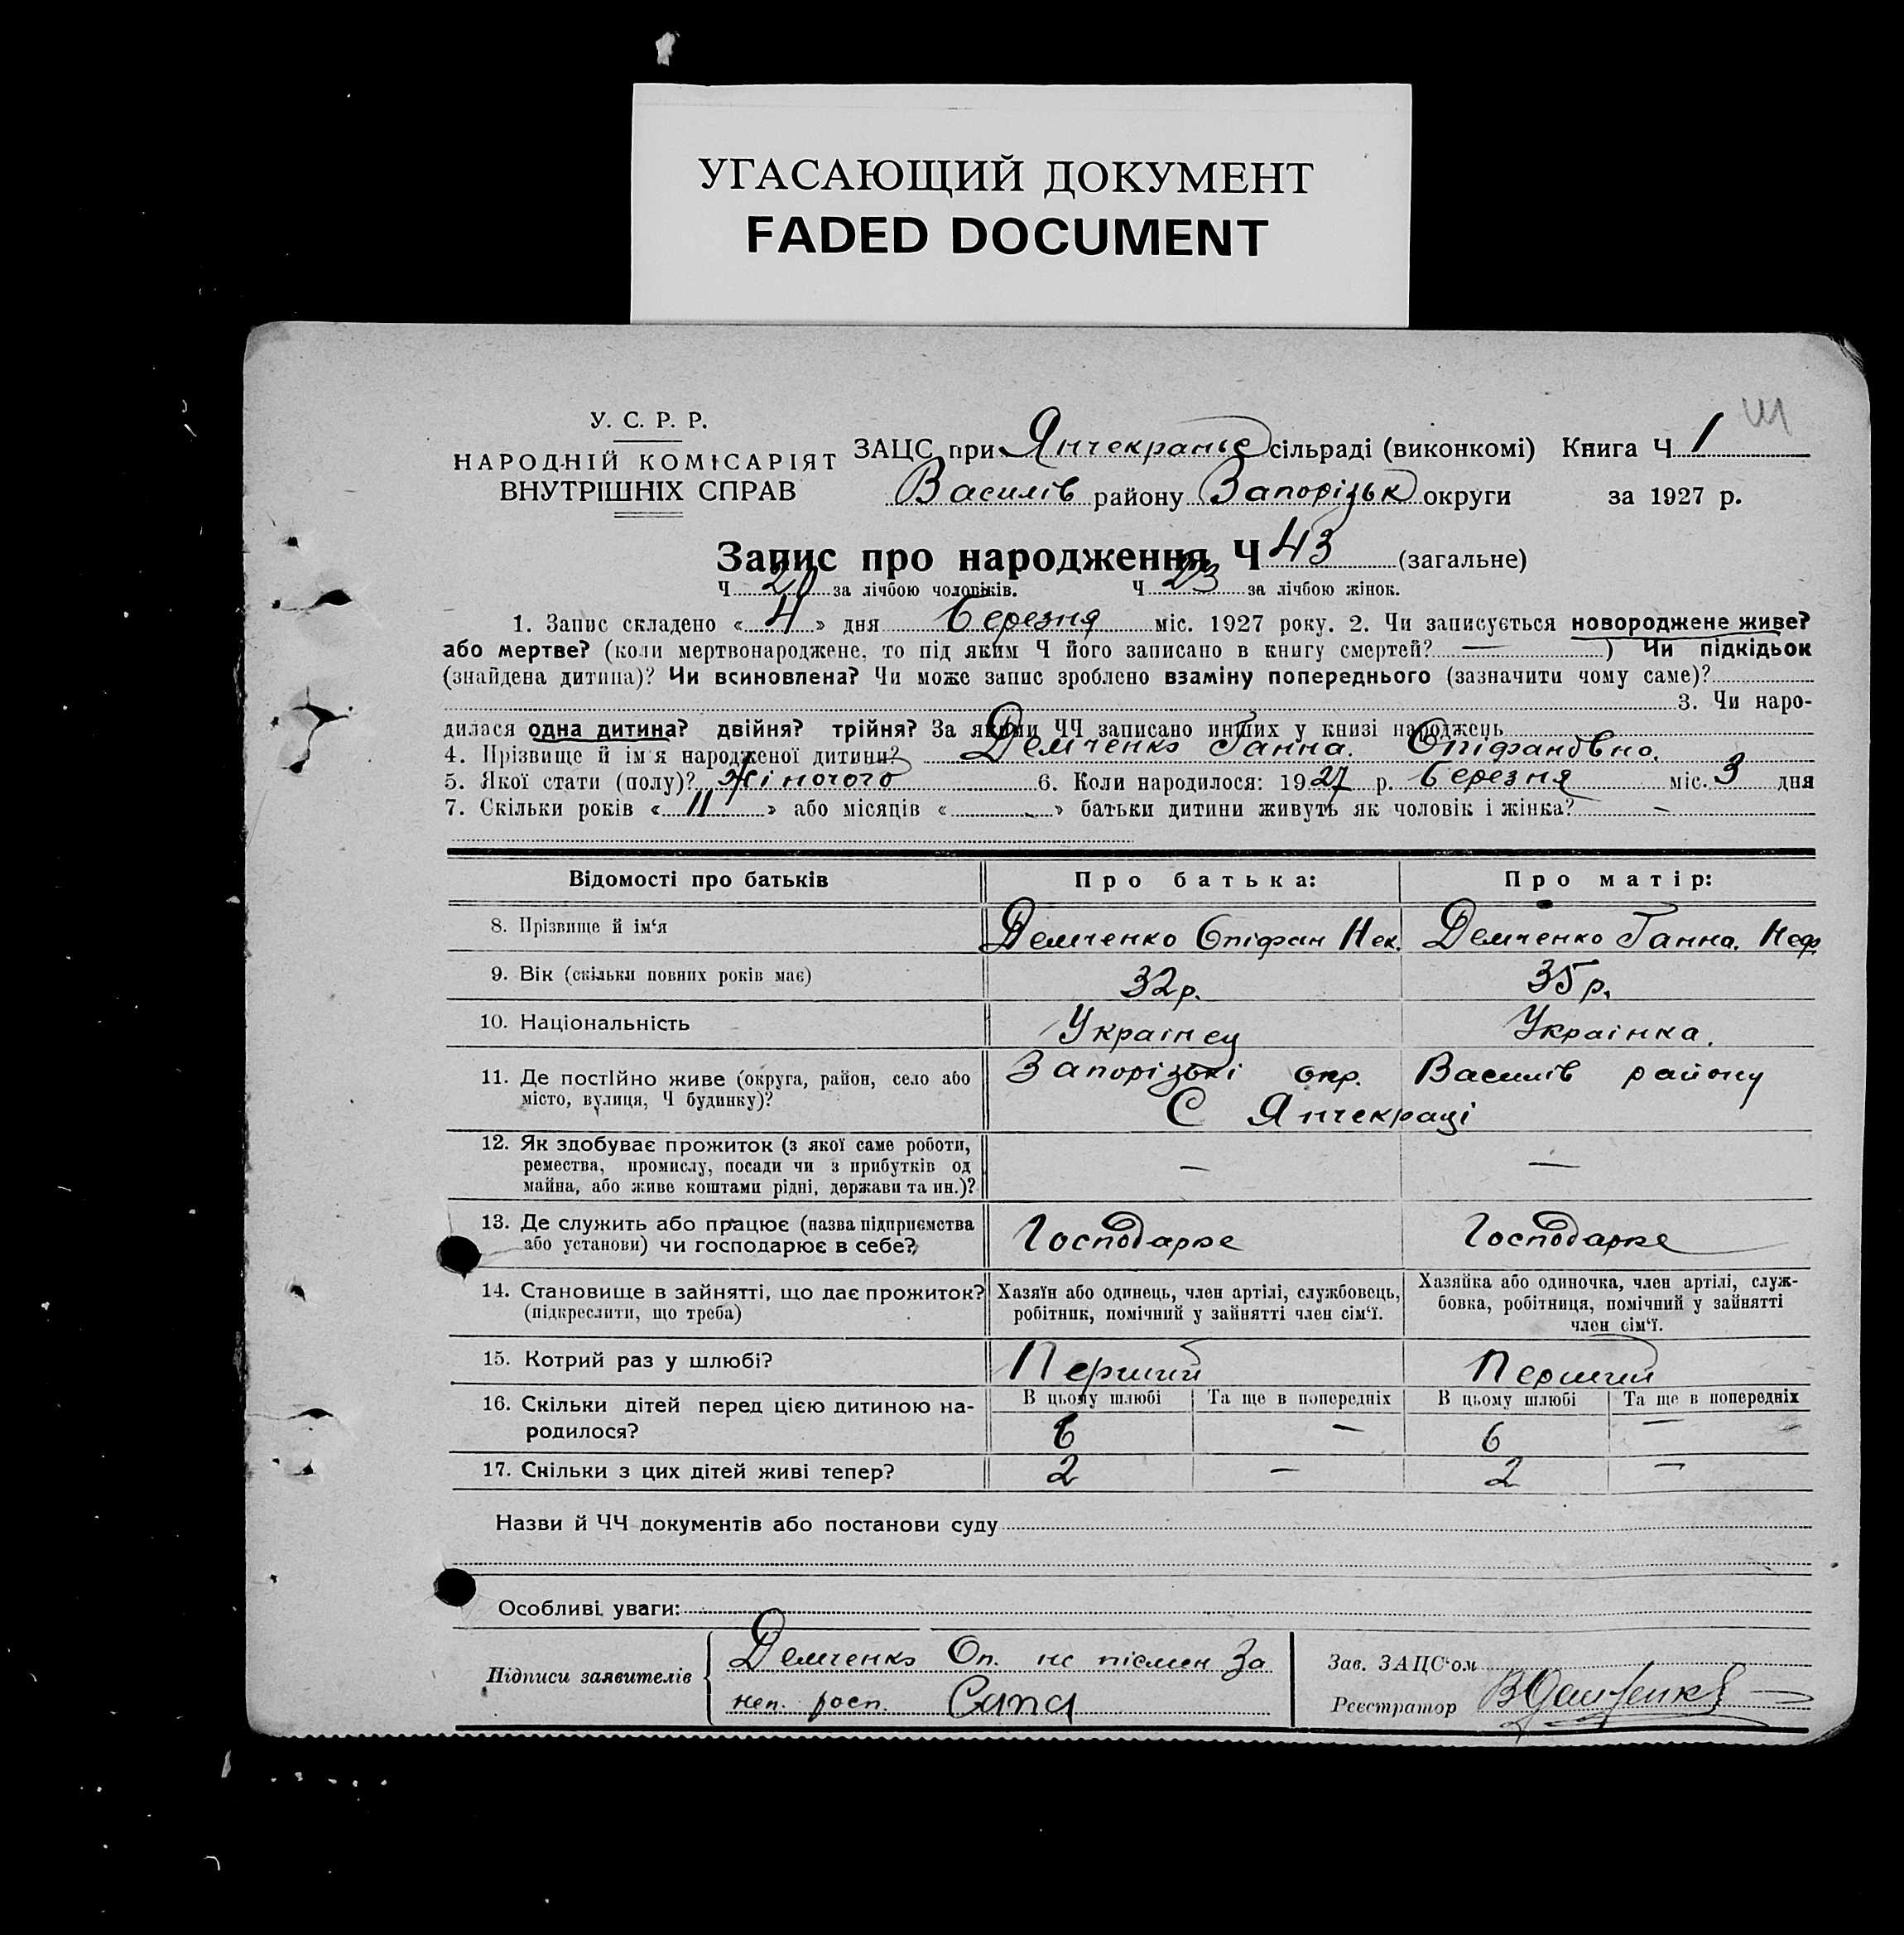 УГАСАЮЩИЙ ДОКУМЕНТ
FADED DOCUMENT
У. С. Р. Р.
НАРОДНІЙ КОМІСАРІЯТ
ВНУТРІШНІХ СПРАВ
ЗАЦС при Янчекраньс сільраді (виконкомі) Книга Ч 1
Василів району Запорізьк округи за 1927 р.
Запис про народження Ч 43 (загальне)
Ч 20 за лічбою чоловіків. Ч 23 за лічбою жінок.
1. Запис складено « 4 » дня Березня міс. 1927 року. 2. Чи записується новороджене живе?
або мертве? (коли мертвонароджене, то під яким Ч його записано в книгу смертей? — ) Чи підкідьок
(знайдена дитина)? Чи всиновлена? Чи може запис зроблено взаміну попереднього (зазначити чому саме)?
3. Чи наро-
дилася одна дитина? двійня? трійня? За якими ЧЧ записано инших у книзі народжень
4. Прізвище й ім'я народженої дитини? Демченко Ганна. Опіфановно.
5. Якої стати (полу)? Жіночого 6. Коли народилося: 1927 р. Березня міс. 3 дня
7. Скільки років « 11 » або місяців « - » батьки дитини живуть як чоловік і жінка? –
Відомості про батьків Про батька: Про матір:
8. Прізвище й ім'я Демченко Опіфан Нек. Демченко Ганна. Неф
9. Вік (скільки повних років має) 32р. 35р.
10. Національність Украінец Украінка.
11. Де постійно живе (округа, район, село або Запорізькі окр. Василів району
місто, вулиця, Ч будинку)? С Янчекраці
12. Як здобуває прожиток (з якої саме роботи,
ремества, промислу, посади чи з прибутків од — —
майна, або живе коштами рідні, держави та ин.)?
13. Де служить або працює (назва підприємства Господарке Господарке
або установи) чи господарює в себе?
14. Становище в зайнятті, що дає прожиток? Хазяїн або одинець, член артілі, службовець, Хазяйка або одиночка, член артілі, служ-
(підкреслити, що треба) робітник, помічний у зайнятті член сім'ї. бовка, робітниця, помічний у зайнятті
член сім'ї.
15. Котрий раз у шлюбі? Перший Перший
16. Скільки дітей перед цією дитиною на- В цьому шлюбі Та ще в попередніх В цьому шлюбі Та ще в попередніх
родилося? 6 — 6 —
17. Скільки з цих дітей живі тепер? 2 — 2 —
Назви й ЧЧ документів або постанови суду
Особливі уваги:
Підписи заявителів Демченко Оп. не пісмен За Зав. ЗАЦС'ом
неп. росп. Реєстратор